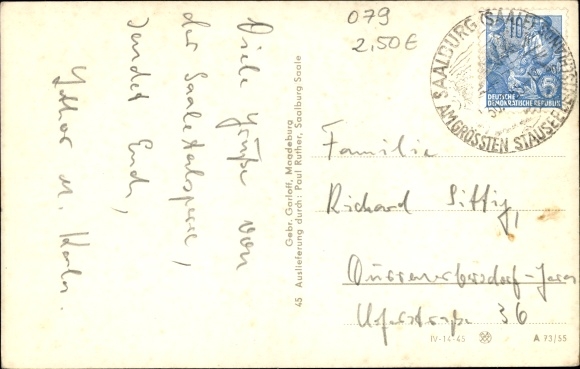 079
2,50€
Viele Grüße von
der Saaletalsperre,
sendet Euch,
Lothar u. Karla.
Gebr. Garloff, Magdeburg
45 Auslieferung durch: Paul Ruther, Saalburg Saale
SAALBURG (SAALE)
AM GRÖSSTEN STAUSEE
10
DEUTSCHE
DEMOKRATISCHE REPUBLIK
6
Familie
Richard Sittig,
Jena
Uferstraße 36
IV-14-45 A 73/55